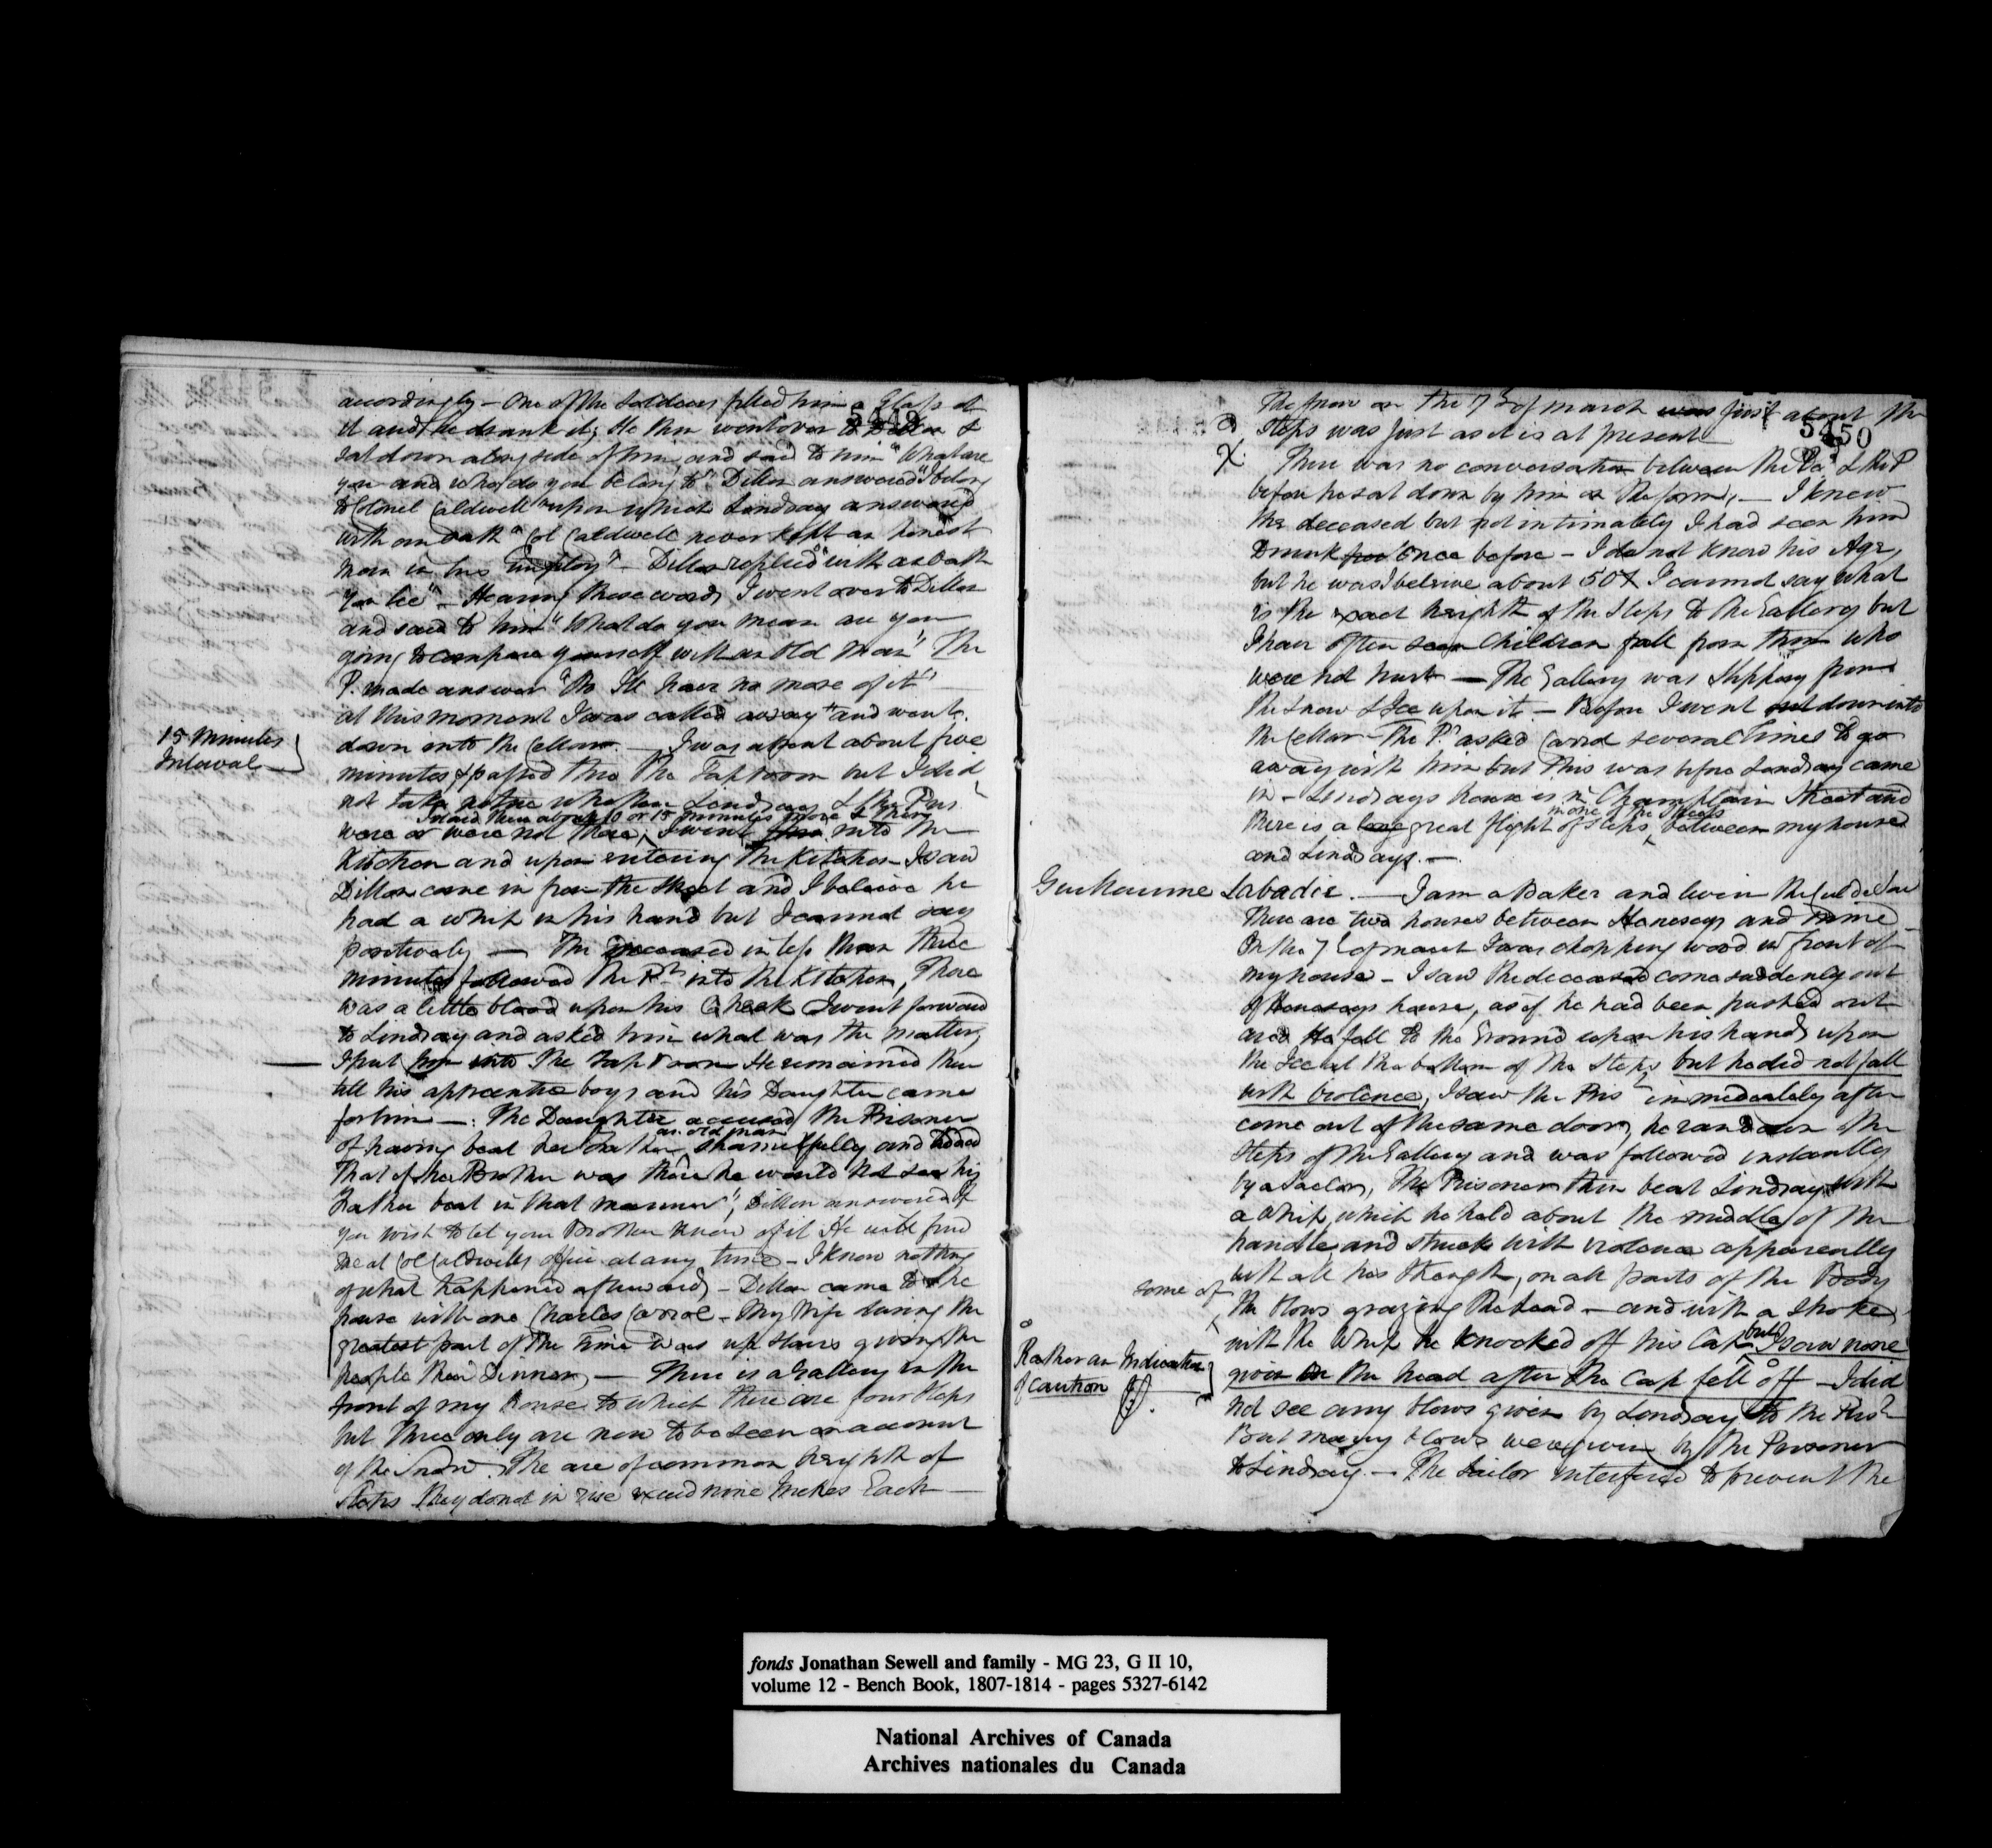 5449
accordingly – One of the Soldiers filled him a Glass of
it and he drank it; He then went over to Dillon &
sat down along side of him, and said to him "What are
you and who do you belong to" Dillon answered "I belong
to Colonel Caldwell" upon which Lindsay answered
with an oath "Col Caldwell never kept an honest
man in his employ" – Dillon replied "with an oath
You lie" – Hearing these words I went over to Dillon
and said to him "What do you mean are you
going to compare yourself with an Old Man" The
P. made answer "No Ill have no more of it" –
at this moment I was called away "and went
down into the Cellar. – I was absent about five
15 Minutes
Interval
minutes & passed thro the Tap room but I did
not take notice whether Lindsay & the Pris.r
were or were not there,
I staid there about 10 or 15 minutes more & then
I went into the
Kitchen and upon entering the Kitchen I saw
Dillon come in from the Street and I believe he
had a whip in his hand but I cannot say
positively – The deceased in less than three
minutes followed the Pr. into the Kitchen, There
was a little blood upon his Cheek I went forward
to Lindsay and asked him what was the matter,
I put him into the Tap Room He remained there
till his apprentice boys and his Daughter came
for him – : The Daughter accused the Prisoner
of having beat her Father an old man shamefully and added
That if her Brother was there he would not see his
Father beat in that manner", Dillon answered If
you wish to let your Brother know of it He will find
me at Col Caldwells office at any time – I know nothing
of what happened afterwards – Dillon came to the
house with one Charles Carrol – My Wife during the
greatest part of the Time was up stairs giving the
people their Dinner, – There is a Gallery in the
front of my House to which there are four steps
but three only are now to be seen on account
of the Snow. The are of common height of
Steps they do not in rise exceed nine Inches Each –
5450
The snow on the 7th of March was just about the
Steps was just as it is at present
X. There was no conversation between the Dec.d & the P
before he sat down by him on the form, – I knew
the deceased but not intimately I had seen him
Drunk once before – I do not know his Age,
but he was I believe about 50 X I cannot say what
is the exact height of the Steps to the Gallery but
I have often seen Children fall from them who
were not hurt – The Gallery was slippery from
the Snow & Ice upon it – Before I went down into
the Cellar The P. asked Carrol several Times to go
away with him but this was before Lindsay came
in – Lindsays house is in Champlain Street and
there is a great flight of steps in one of the Streets between my house
and Lindsays. –
Guillaume Labadie. – I am a Baker and live in the Cul de Sac
There are two houses between Hennesseys and mine
On the 7th of March I was chopping wood in front of
my house – I saw the deceased come suddenly out
of Hennesseys house, as if he had been pushed out
and He fell to the Ground upon his hands upon
the Ice at the bottom of the Steps but he did not fall
with violence, I saw the Pris.r immediately after
come out of the same door, he ran down the
Steps of the Gallery and was followed instantly
by a Sailor, The Prisoner then beat Lindsay with
a Whip which he held about the middle of the
handle and struck with violence apparently
with all his strength, on all parts of the Body
some of
the blows grazing the head – and with a stroke
with the Whip he knocked off his Cap but I saw none
given on the head after the Cap fell off – I did
Rather an Indication
of caution
not see any blows given by Lindsay to the Pris.r
But many blows were given by the Prisoner
to Lindsay. – The Sailor interfered to prevent the
fonds Jonathan Sewell and family - MG 23, G II 10,
volume 12 - Bench Book, 1807-1814 - pages 5327-6142
National Archives of Canada
Archives nationales du Canada